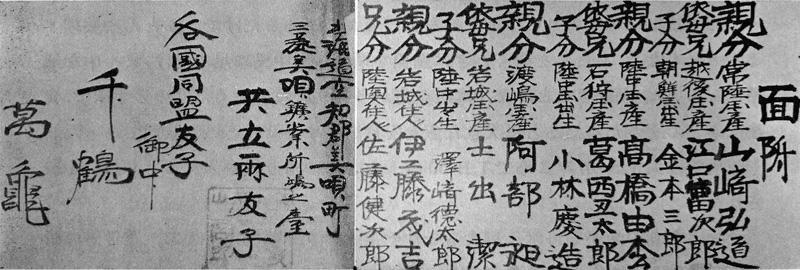 面附
親分 常陸国産 山﨑弘道
兄 越後国産 江口富次郎
子分 朝鮮出生 金本三郎
親分 陸中国産 髙橋由
兄 石狩国産 葛西丑太郎
子分 陸中出生 小林慶造
親分 渡嶋国産 阿部昶
兄 岩城国産 土出潔
子分 陸中出生 澤﨑徳太郎
親分 岩城住人 伊藤茂吉
兄分 陸奥住人 佐藤健次郎
北海道空知郡美唄町
三菱美唄鑛業所鳴之臺
共立両友子
各國同盟友子
御中
千鶴
萬龜